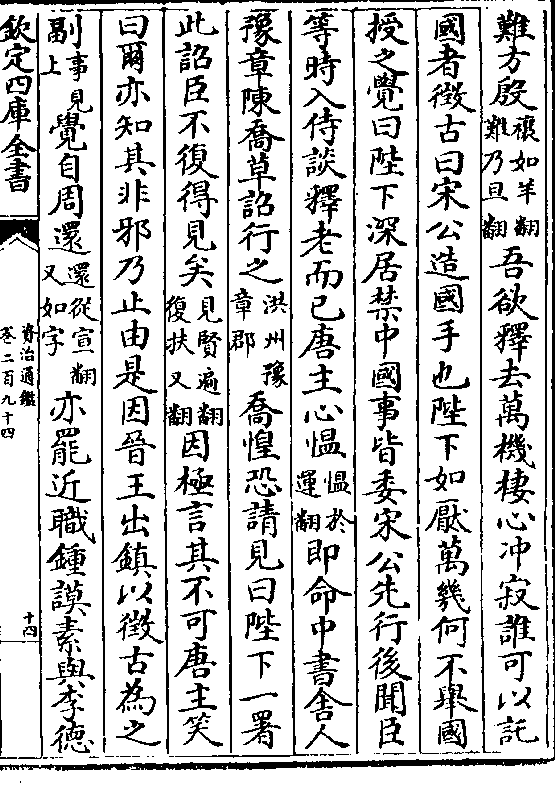 難方殷禳如羊翻難乃旦翻吾欲釋去萬機棲心沖寂誰可以託
國者徵古曰宋公造國手也陛下如厭萬幾何不舉國
授之覺曰陛下深居禁中國事皆委宋公先行後聞臣
等時入侍談釋老而已唐主心慍慍於運翻即命中書舍人
豫章陳喬草詔行之洪州豫章郡喬惶恐請見曰陛下一署
此詔臣不復得見矣見賢遍翻復扶又翻因極言其不可唐主笑
曰爾亦知其非邪乃止由是因晉王出鎮以徵古為之
副事見上覺自周還還從宣翻又如字亦罷近職鍾謨素與李德
欽定四庫全書
資治通鑑
卷二百九十四
十四